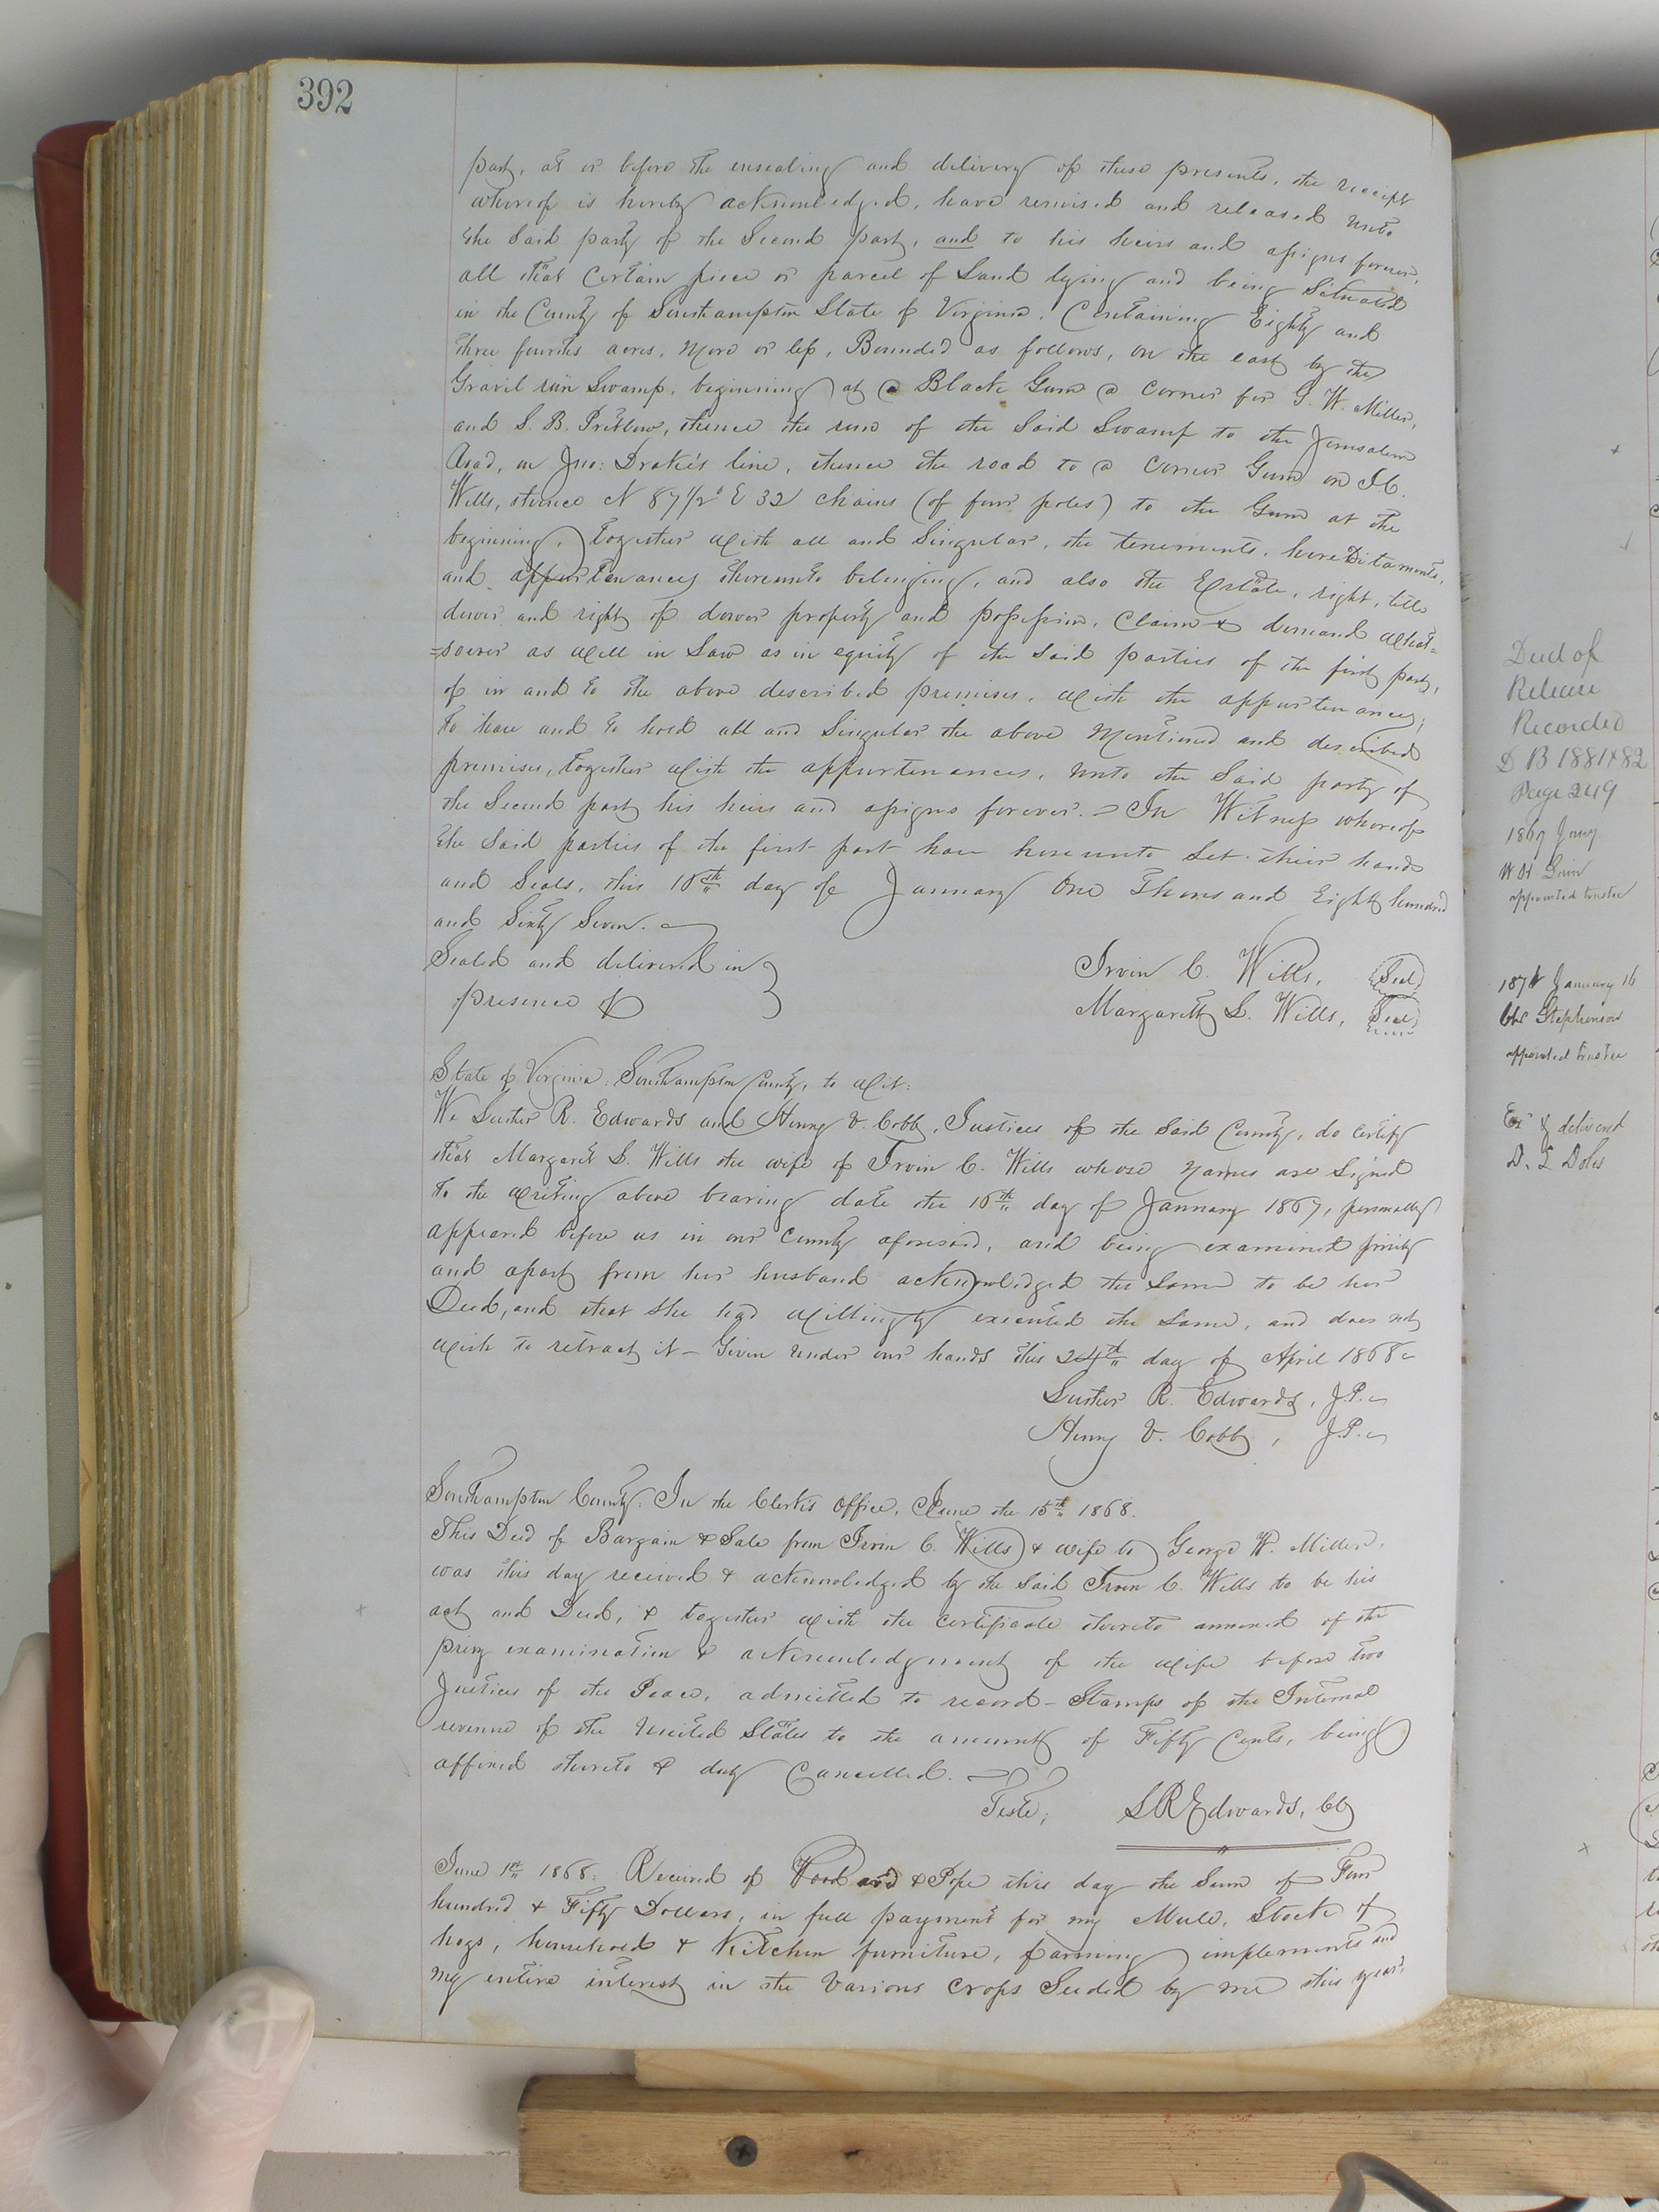 392
part, at or before the ensealing and delivery of these presents, the receipt
whereof is hereby acknowledged, have remised and released unto
the said party of the Second part, and to his heirs and assigns forever,
all that certain piece or parcel of Land lying and being situated
in the County of Southampton State of Virginia. Containing Eighty and
three fourths acres, more or less, Bounded as follows, on the east by the
Gravil run Swamp, beginning at a Black Gum a corner for G. W. Miller,
and S. B. Pretlow, thence the run of the said Swamp to the Jerusalem
Road, on Jno: Drake's line, thence the road to a corner Gum on I C.
Wills, thence N 87 1/2° E 32 chains (of four poles) to the Gum at the
beginning. Together with all and Singular, the tenements, hereditaments,
and appurtenances thereunto belonging, and also the Estate, right, title
dower and right of dower property and possession, claim & demand what=
=soever as well in Law as in equity of the said parties of the first part,
of in and to the above described premises, with the appurtenances;
To have and to hold all and Singular the above Mentioned and described
premises, together with the appurtenances, unto the Said party of
the Second part his heirs and assigns forever. = In Witness whereof
the Said parties of the first part have hereunto Set their hands
and Seals, this 10th day of January One Thousand Eight hundred
and Sixty Seven.
Sealed and delivered in }
presence of
Irvin C. Wills, Seal
Margarett S. Wills, Seal
State of Virginia: Southampton County, to wit:
We Luster R. Edwards and Henry V. Cobb, Justices of the said County, do certify
that Margaret S. Wills the wife of Irvin C. Wills whose names are Signed
to the writing above bearing date the 10th day of January 1867, personally
appeared before us in our county aforesaid, and being examined privily
and apart from her husband acknowledged the same to be her
Deed, and that she had willingly executed the same, and does not
wish to retract it - Given under our hands this 24th day of April 1868
Luster R. Edwards, J.P.
Henry V. Cobb, J.P.
Southampton County: In the Clerk's Office, June the 15th 1868.
This Deed of Bargain & Sale from Irvin C. Wills & wife to George W. Miller,
was this day received & acknowledged by the said Irvin C. Wills to be his
act and Deed, & together with the certificate thereto annexed of the
privy examination & acknowledgment of the wife before two
Justices of the Peace, admitted to record - Stamps of the Internal
revenue of the United States to the amount of Fifty Cents, being
affixed thereto & duly Cancelled.
Teste, L R Edwards, Clk
June 1st 1868: Received of Wood ard & Pope this day the Sum of Four
hundred & Fifty Dollars, in full payment for my Mule, Stock of
hogs, household & Kitchen furniture, farming implements and
my entire interest in the various crops Seeded by me this year,
Deed of
Release
Recorded
D B 1881 & 82
Page 249
1867 Jany
appointed trustee
January 16
Stephenson
appointed trustee
Exd & delivered